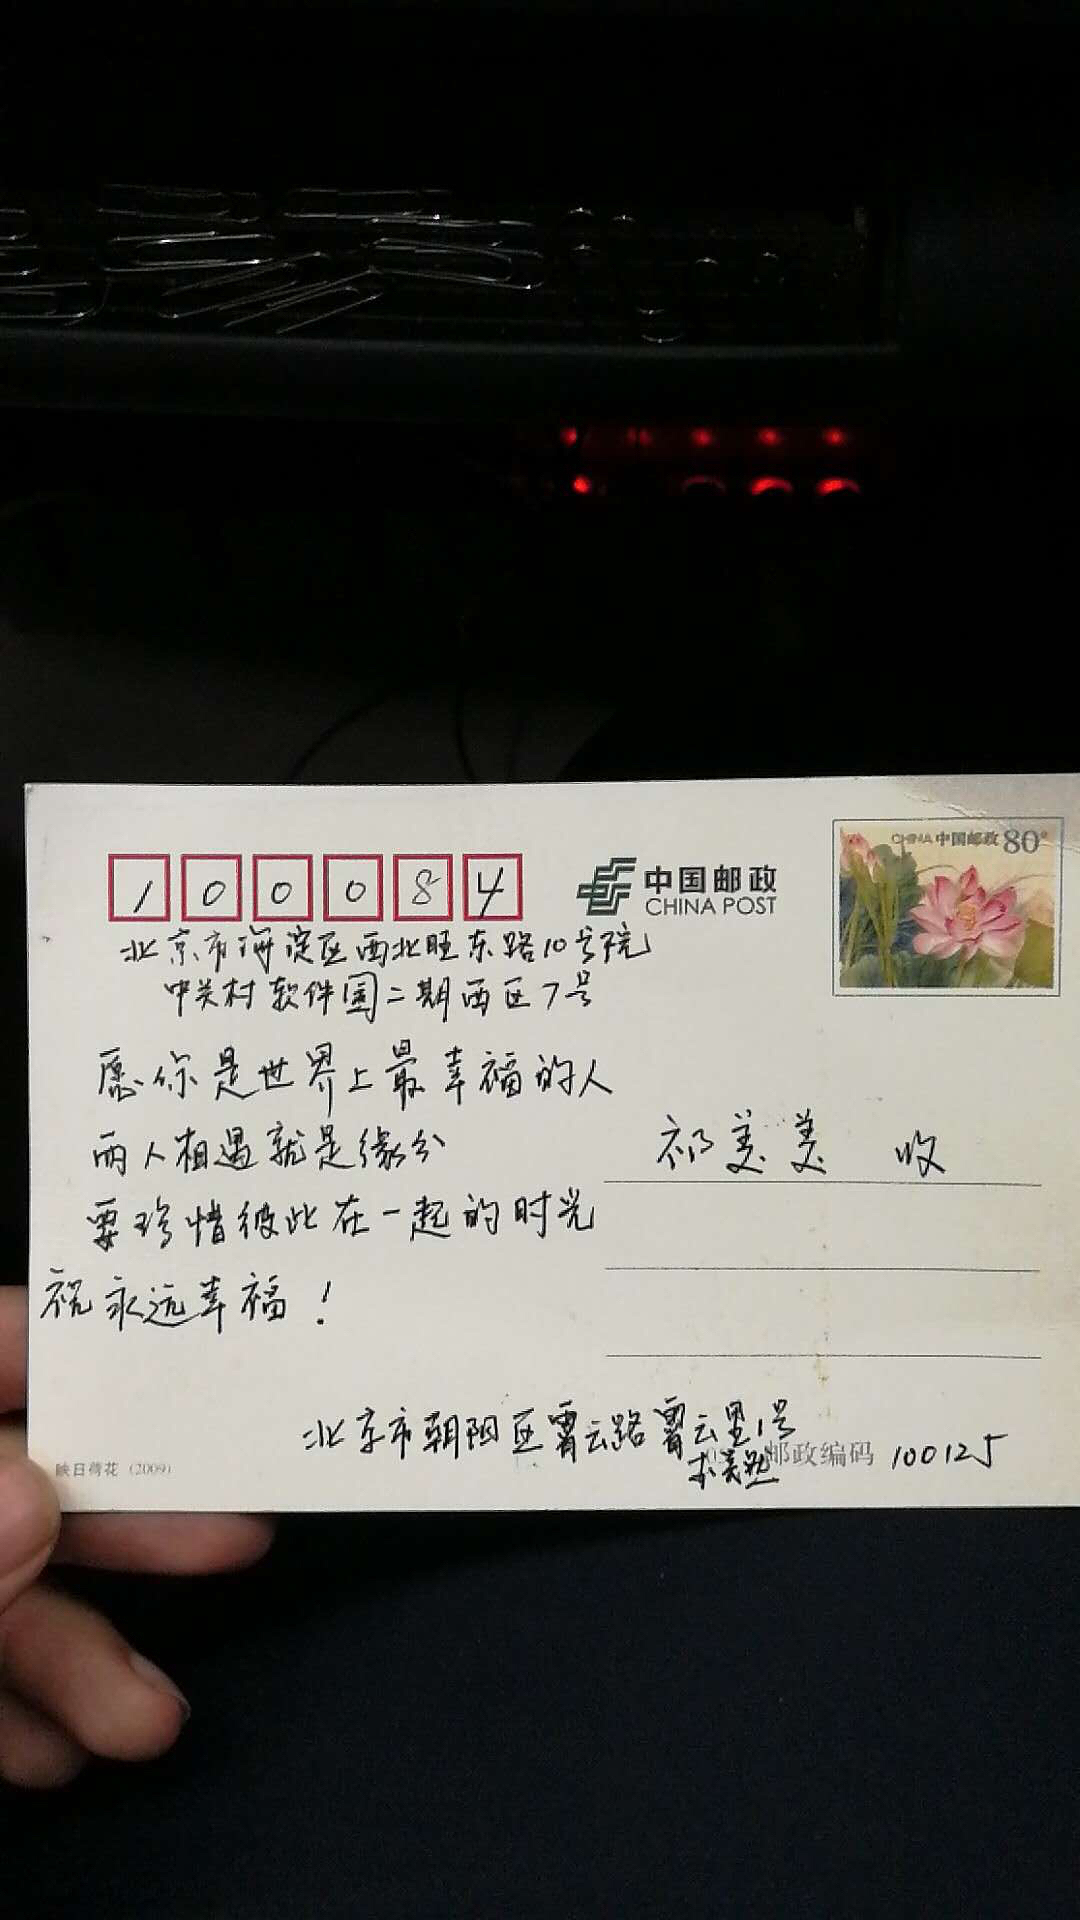 100084
中国邮政
CHINA POST
CHINA 中国邮政 80
北京市海淀区西北旺东路10号院
中关村软件园二期西区7号
愿你是世界上最幸福的人
两人相遇就是缘分
要珍惜彼此在一起的时光
祝永远幸福！
祁美美 收
北京市朝阳区霄云路霄云里1号
邮政编码 100125
映日荷花 (2009)